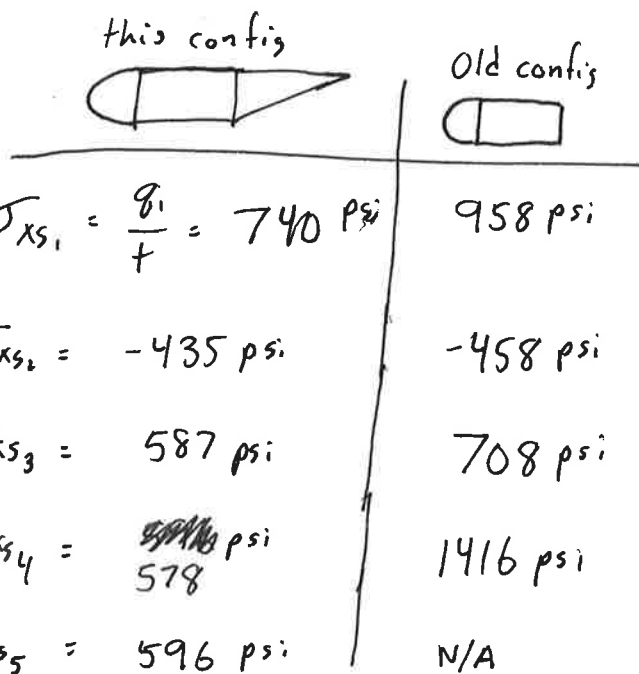 this config
Old config
σxs₁ = q₁/t = 740 psi 958 psi
xs₂ = -435 psi -458 psi
xs₃ = 587 psi 708 psi
s₄ = psi 1416 psi
578
s₅ = 596 psi N/A